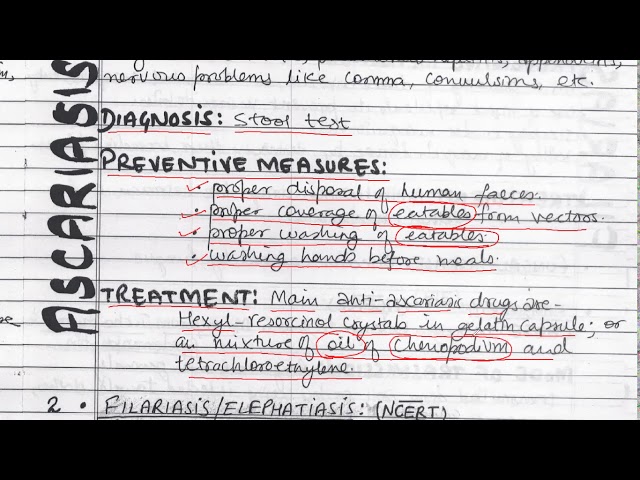 nervous problems like comma, convulsims, etc.
DIAGNOSIS: Stool test
PREVENTIVE MEASURES:
proper disposal of human faeces.
proper coverage of eatables from vectors.
proper washing of eatables.
washing hands before meals.
TREATMENT: Main anti-ascariasis drugs are-
Hexyl-resorcinol crystals in gelatin capsule; or
an mixture of oil of Chenopodium and
tetrachloroethylene.
2. FILARIASIS/ELEPHATIASIS: (NCERT)
ASCARIASIS